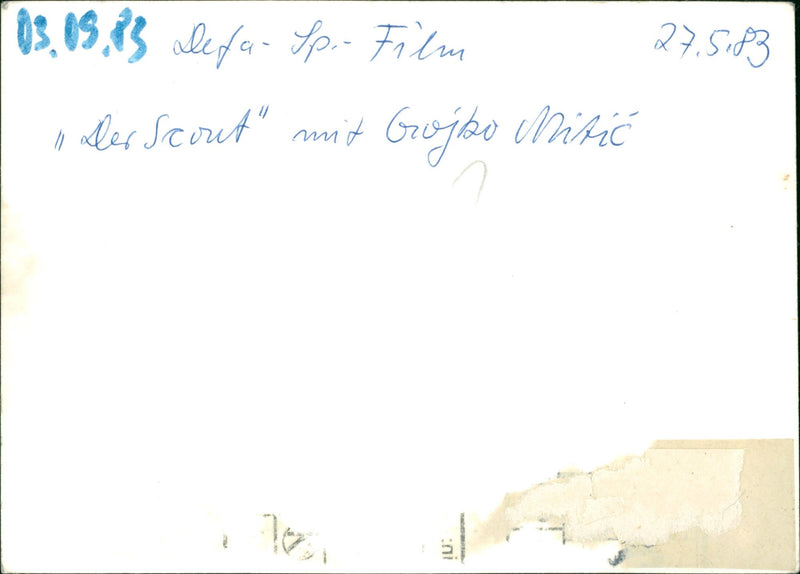 03.09.83 Defa-Sp.-Film 27.5.83
"Der Scout" mit Gojko Mitić